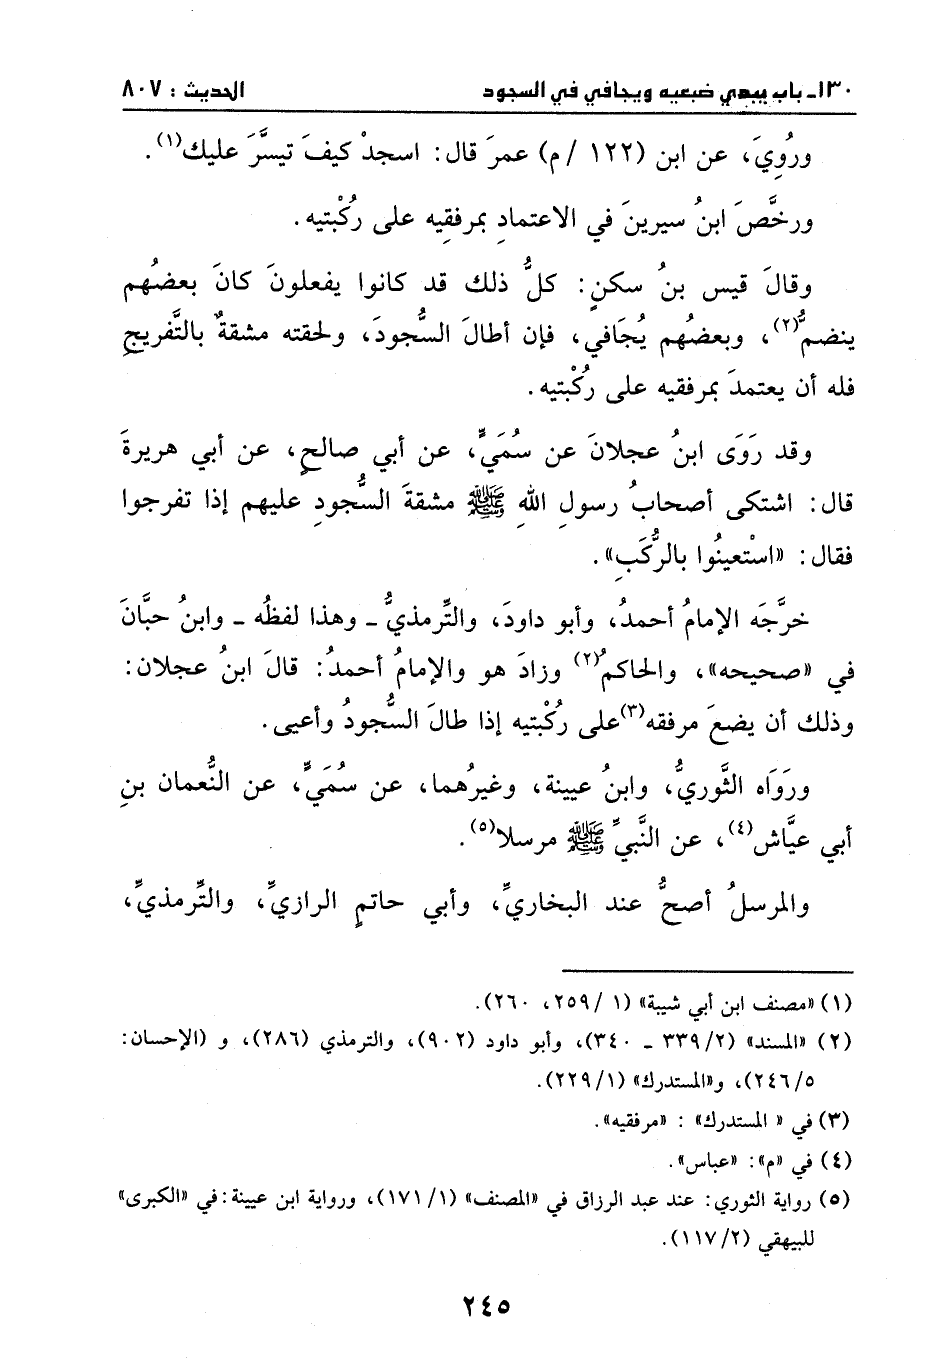 ١٣٠ـ باب يبدي ضبعيه ويجافي في السجود الحديث : ٨٠٧
ورُوِيَ، عن ابن (١٢٢ /م) عمرَ قال: اسجدْ كيفَ تيسَّرَ عليك(١).
ورخَّصَ ابنُ سيرينَ في الاعتمادِ بمرفقِيه على ركْبتيه.
وقالَ قيس بنُ سكنٍ: كلُّ ذلك قد كانوا يفعلونَ كانَ بعضُهم
ينضمُّ(٢)، وبعضُهم يُجَافي، فإن أطالَ السُّجودَ، ولحقته مشقةٌ بالتَّفريجِ
فله أن يعتمدَ بمرفقيه على ركُبْتيه.
وقد رَوَى ابنُ عجلانَ عن سُمَيٍّ، عن أبي صالحٍ، عن أبي هريرةَ
قال: اشتكى أصحابُ رسولِ اللهِ ﷺ مشقةَ السُّجودِ عليهم إذا تفرجوا
فقال: «اسْتعينُوا بالرُّكَبِ».
خرَّجَه الإمامُ أحمدُ، وأبو داودَ، والتِّرمذيُّ ـ وهذا لفظُه ـ وابنُ حبَّانَ
في «صحيحه»، والحاكمُ(٢) وزادَ هو والإمامُ أحمدُ: قالَ ابنُ عجلان:
وذلك أن يضعَ مرفقه(٣)على ركُبْتيه إذا طالَ السُّجودُ وأعيى.
ورَوَاه الثَّوريُّ، وابنُ عيينة، وغيرُهما، عن سُمَيٍّ، عن النُّعمان بنِ
أبي عيَّاش(٤)، عن النَّبيِّ ﷺ مرسلا(٥).
والمرسلُ أصحُّ عند البخاريِّ، وأبي حاتمٍ الرازيِّ، والتِّرمذيِّ،
(١) «مصنف ابن أبي شيبة» (١ /٢٥٩، ٢٦٠).
(٢) «المسند» (٢/ ٣٣٩ ـ ٣٤٠)، وأبو داود (٩٠٢)، والترمذي (٢٨٦)، و (الإحسان:
٥/ ٢٤٦)، و«المستدرك» (١/ ٢٢٩).
(٣) في « المستدرك» : «مرفقيه».
(٤) في «م»: «عباس».
(٥) رواية الثوري: عند عبد الرزاق في «المصنف» (١/ ١٧١)، ورواية ابن عيينة: في «الكبرى»
للبيهقي (٢/ ١١٧).
٢٤٥